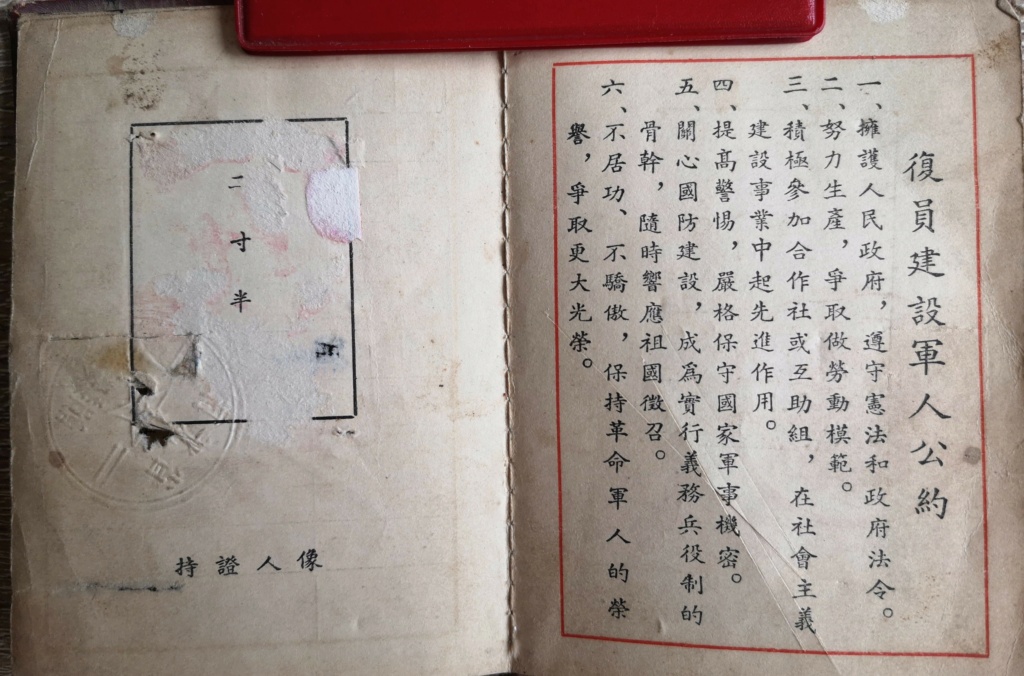 復員建設軍人公約
一、擁護人民政府，遵守憲法和政府法令。
二、努力生產，爭取做勞動模範。
三、積極參加合作社或互助組，在社會主義
建設事業中起先進作用。
四、提高警惕，嚴格保守國家軍事機密。
五、關心國防建設，成爲實行義務兵役制的
骨幹，隨時響應祖國徵召。
六、不居功、不驕傲，保持革命軍人的榮
譽，爭取更大光榮。
二寸半
持證人像